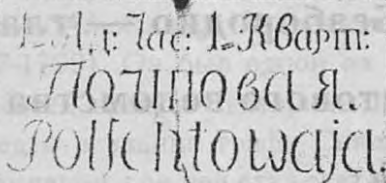 1. Ад: Час: 1. Кварт:
Почтовая.
Potschtowaja.